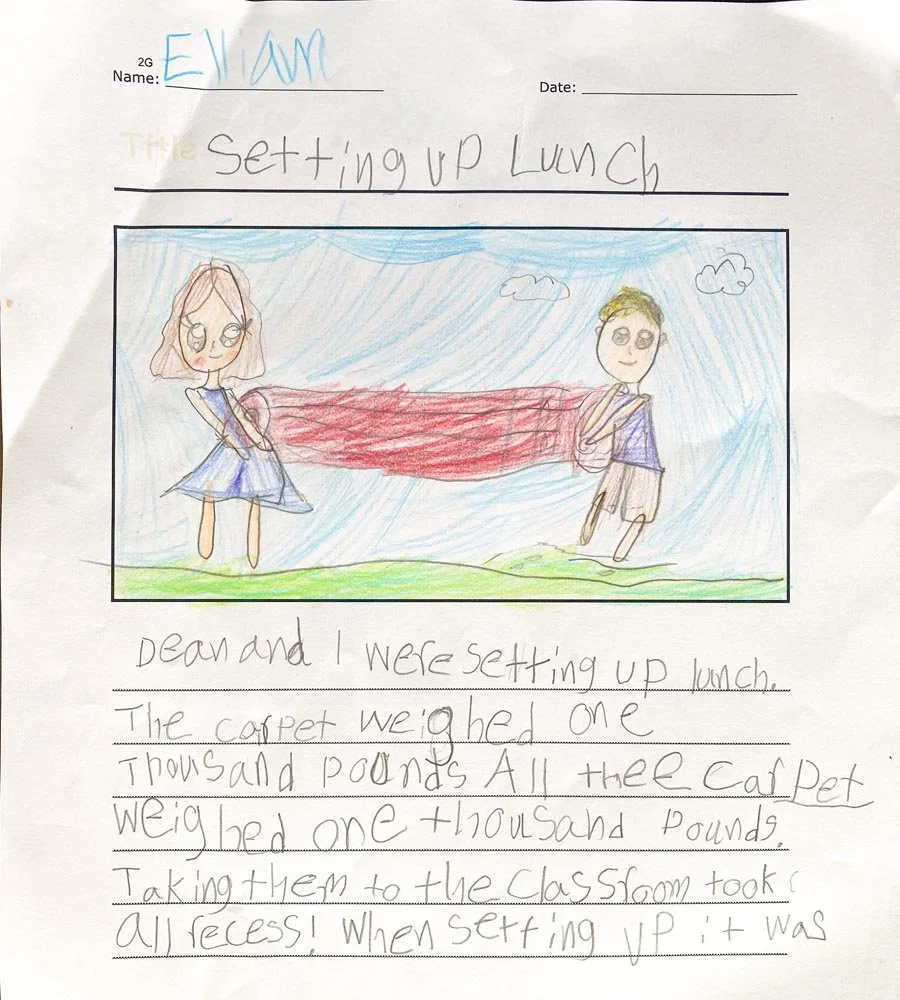 2G
Name: Ellian
Date:
Title Setting up Lunch
Dean and I were setting up lunch.
The carpet weighed one
Thousand pounds All thee carpet
weighed one thousand pounds.
Taking them to the classroom took
all recess! When setting up it was